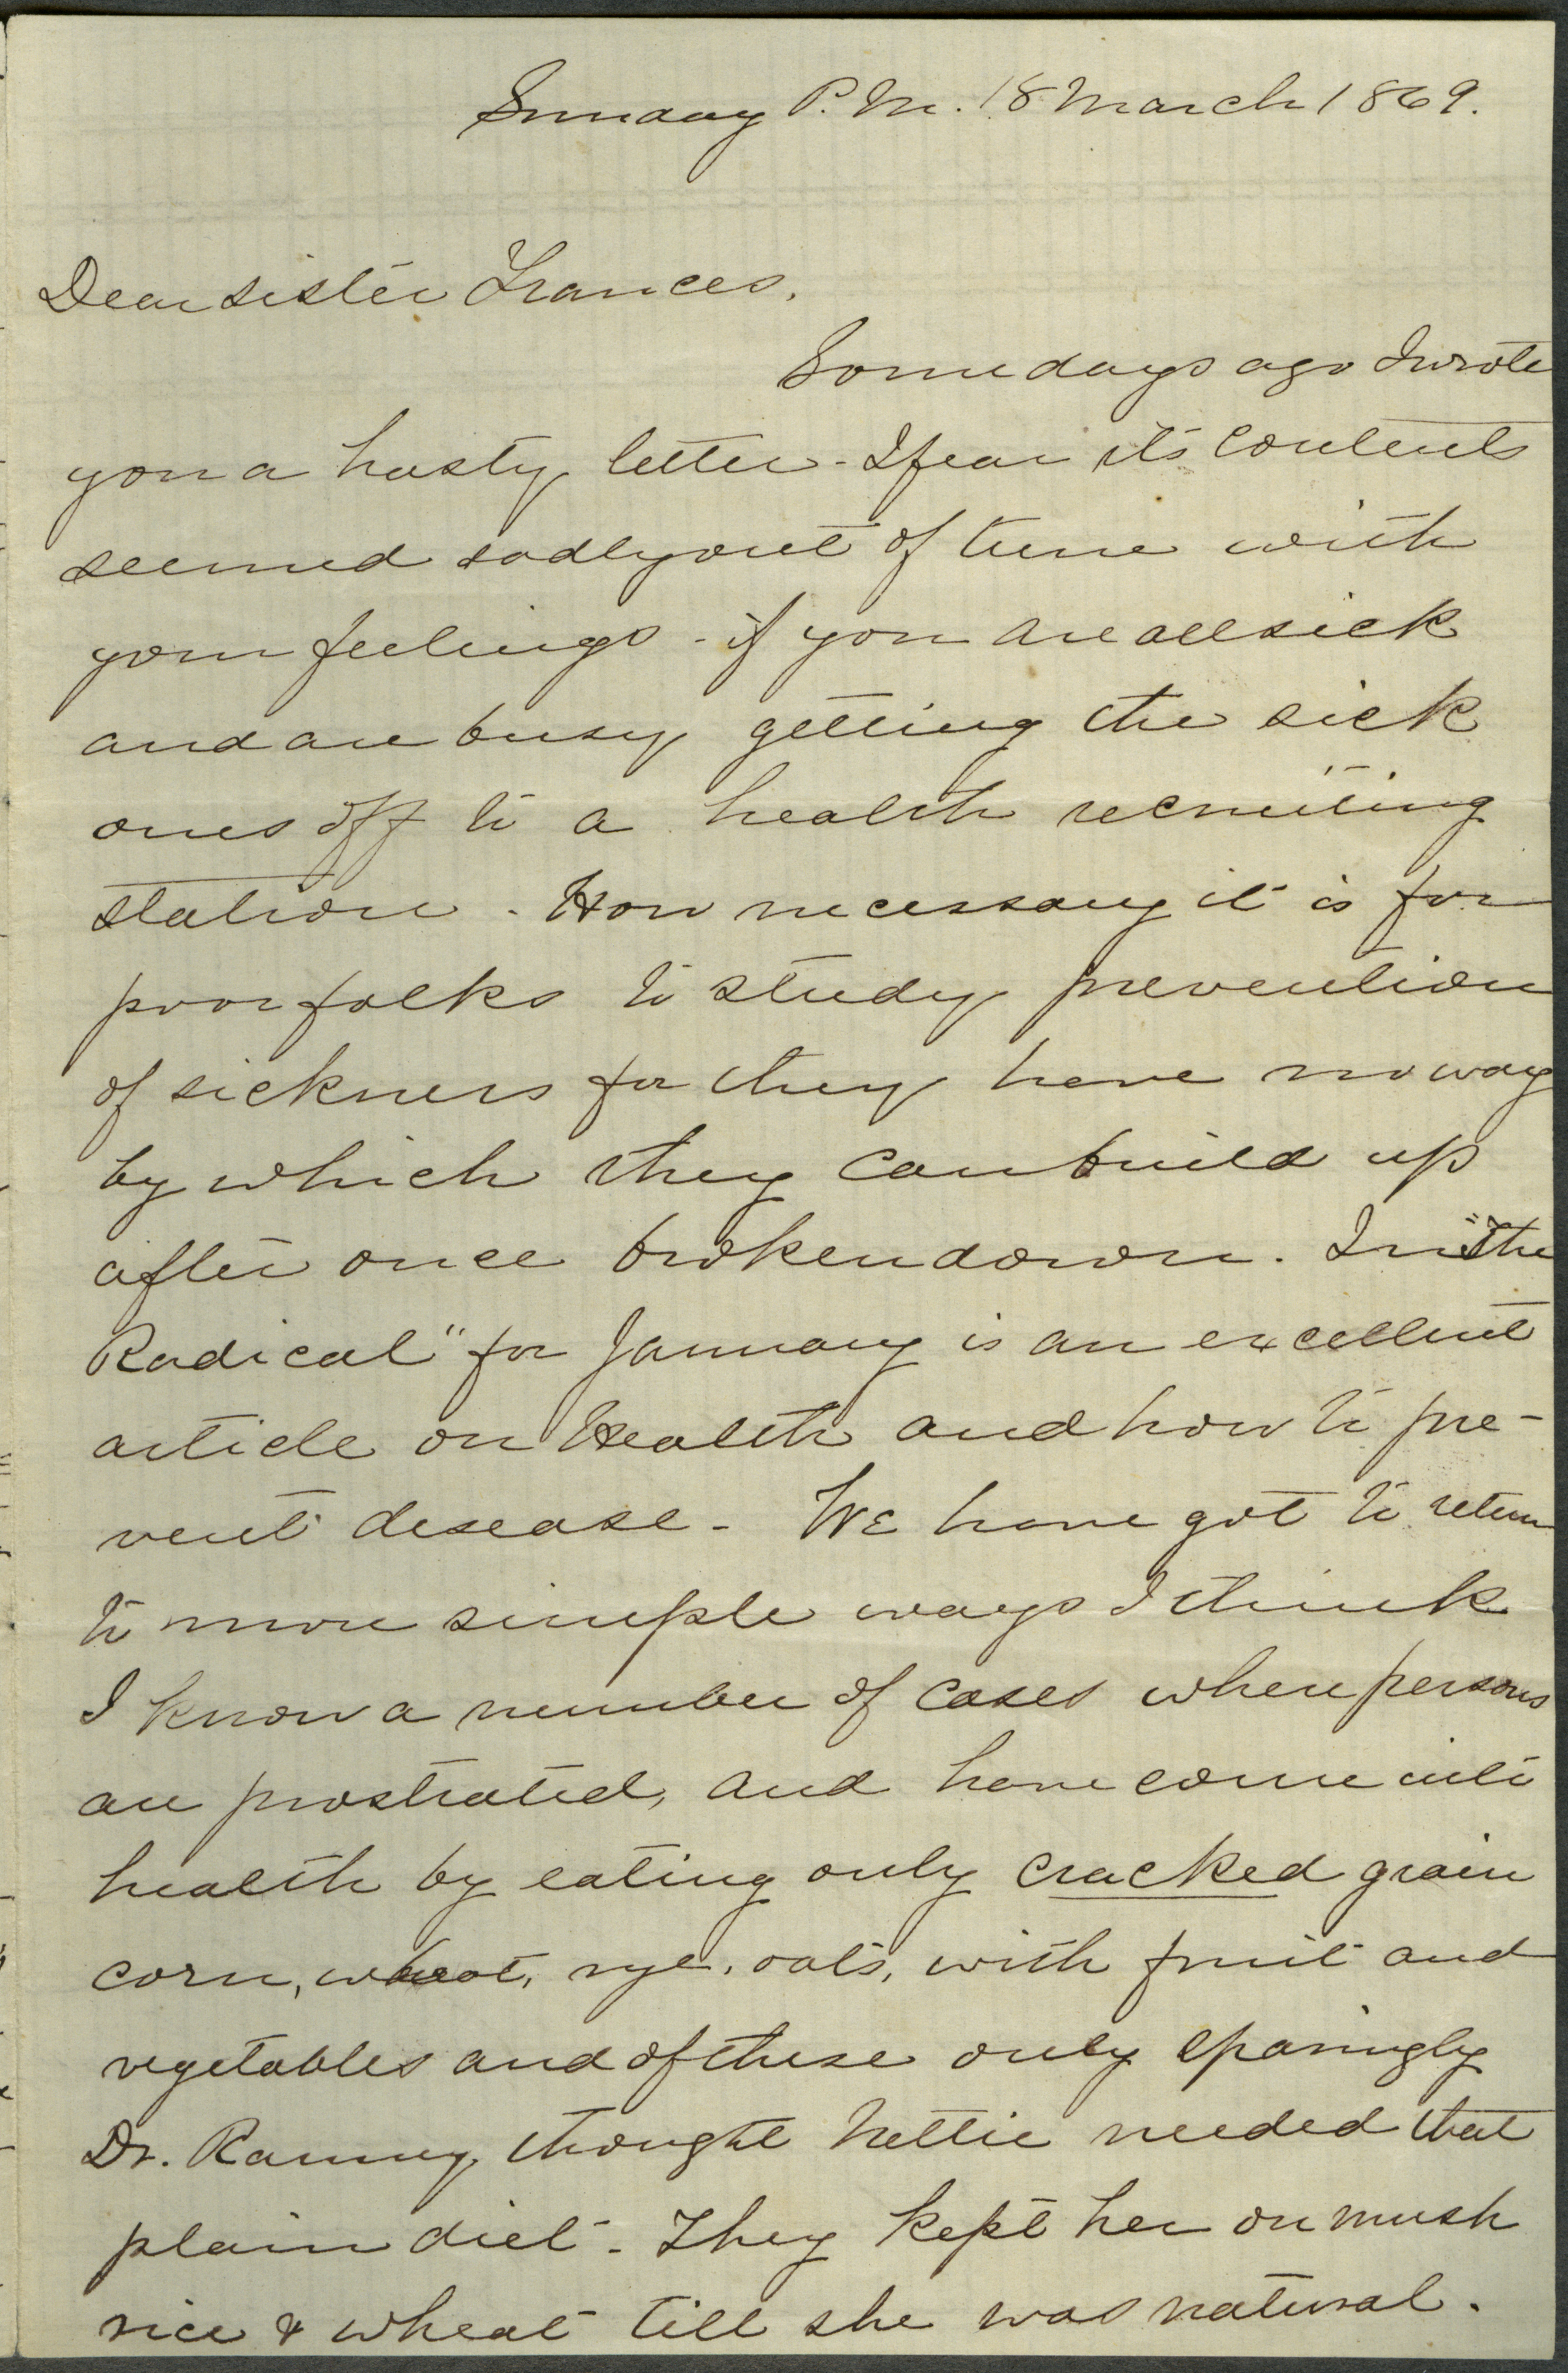 Sunday P.M. 18 March 1869.
Dear sister Frances,
Some days ago I wrote
you a hasty letter - I fear its contents
seemed sadly out of tune with
your feelings - if you are all sick
and are busy getting the sick
ones off to a health recruiting
station - How necessary it is for
poor folks to study prevention
of sickness for they have no way
by which they can build up
after once broken down. In "The
Radical" for January is an excellent
article on Health and how to pre-
vent disease - We have got to return
to more simple ways I think
I know a number of cases where persons
are prostrated, and have come into
health by eating only cracked grain
corn, wheat, rye, oats, with fruit and
vegetables and of these only sparingly
Dr. Ranney thought Nettie needed that
plain diet - They kept her on mush
rice & wheat till she was natural.